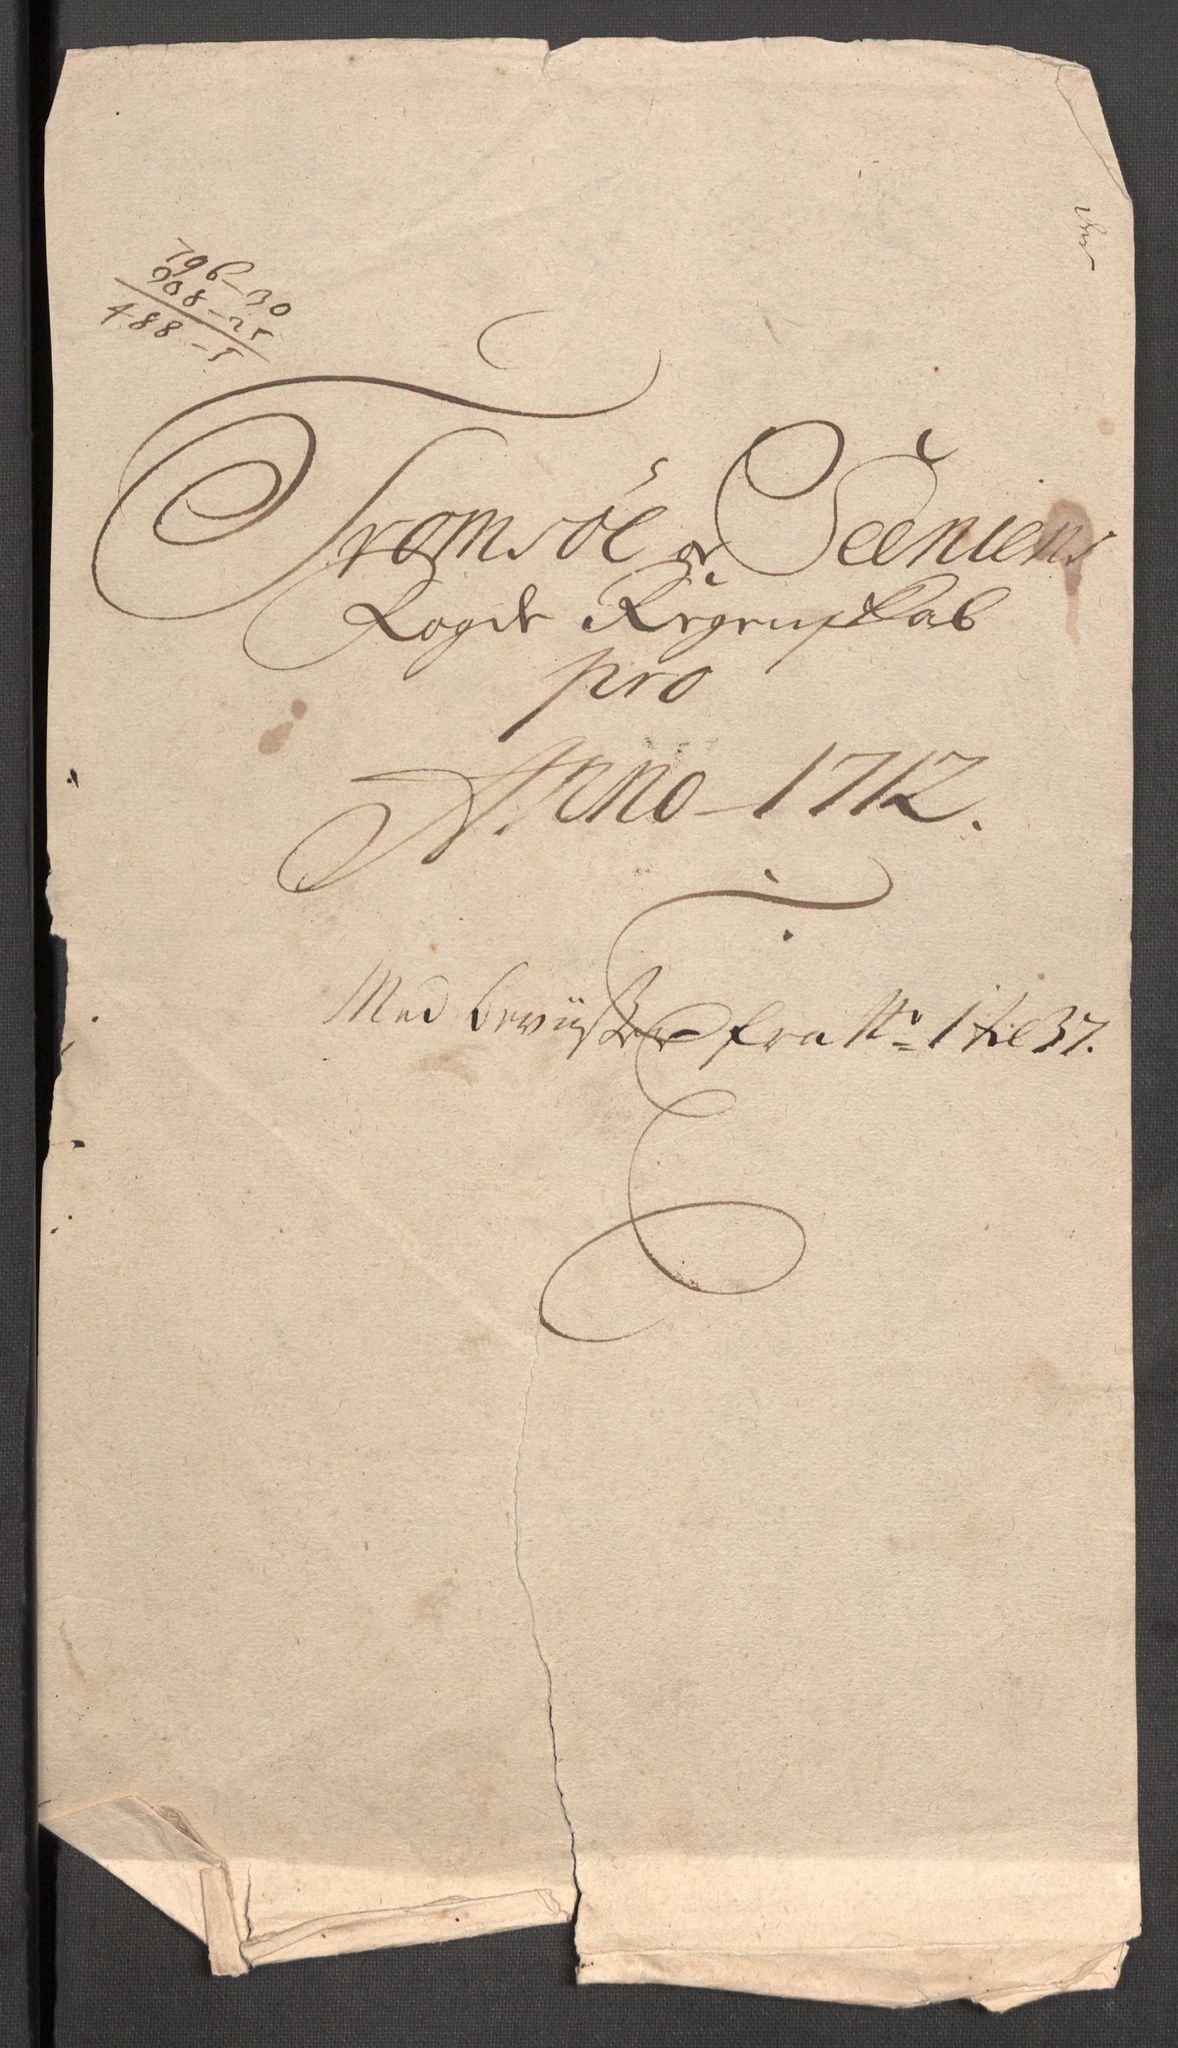 796-30
908-25
488-5
Tromsöe og Seeniens
Fogde Regenskab
pro
Anno 1712.
Med beviiser fra No 1 til 37.